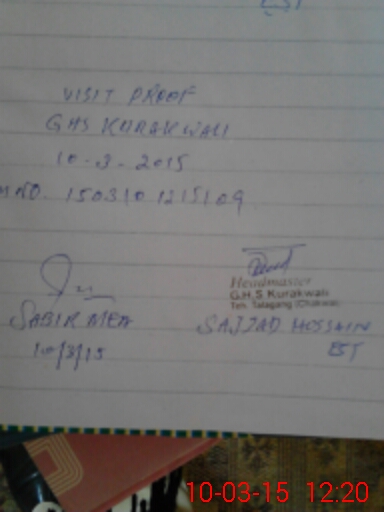 EST
VISIT PROOF
GHS KURAKWALI
10-3-2015
NO. 1503101215109
SABIR MEA
10/3/15
Headmaster
G.H.S Kurakwali
Teh. Talagang (Chakwal)
SAJJAD HUSSAIN
EST
10-03-15 12:20